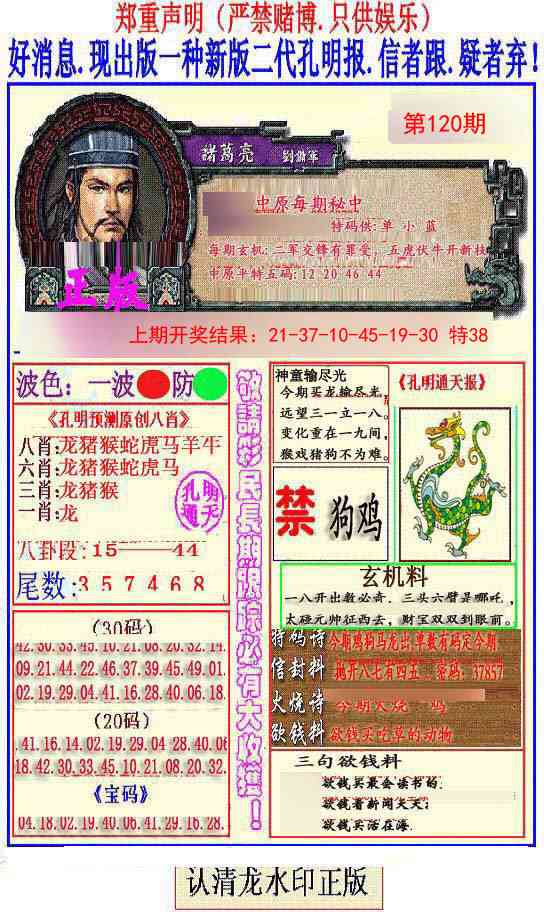 郑重声明（严禁赌博.只供娱乐）
好消息.现出版一种新版二代孔明报.信者跟.疑者弃!
第120期
諸葛亮 劉備軍
中原每期秘中
特码供:单 小 蓝
每期玄机:二军交锋有罪受，五虎伏牛开新枝
中原平特五码:12 20 46 44
正版
上期开奖结果：21-37-10-45-19-30 特38
波色：一波 防
《孔明预测原创八肖》
八肖:龙猪猴蛇虎马羊牛
六肖:龙猪猴蛇虎马
三肖:龙猪猴
一肖:龙
孔明
通天
八卦段:15——44
尾数:3 5 7 4 6 8
(30码)
42.30.33.45.10.21.08.20.32.14
09.21.44.22.46.37.39.45.49.01
02.19.29.04.41.16.28.40.06.18
(20码)
.41.16.14.02.19.29.04.28.40.06
18.42.30.33.45.10.21.08.20.32
《宝码》
04.18.02.19.40.06.41.29.16.28.
敬請彩民長期跟踪必有大收獲！
神童输尽光
今期买龙输尽光，
远望三一立一八。
变化重在一九间，
猴戏猪狗不为难。
《孔明通天报》
禁 狗鸡
玄机料
一八开出数必奇．三头六臂是哪吒，
太碰元帅征西去，财宝双双到眼前。
特码诗 今期鸡狗马龙出.单数有码定今期
信封料 抛开八七有四五．密码：37857
火烧诗 今期火烧 码
欲钱料 欲钱买吃草的动物
三句欲钱料
欲钱买最会读书的.
欲钱看新闻天天;
欲钱买活在海.
认清龙水印正版